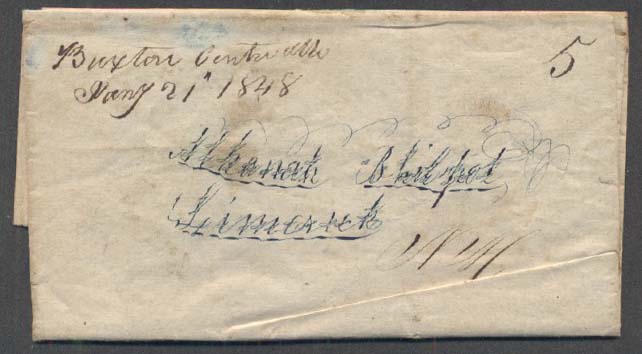 Buxton Centre Me
5
Jany 21" 1848
Alkanah Philpot
Limerick
Me